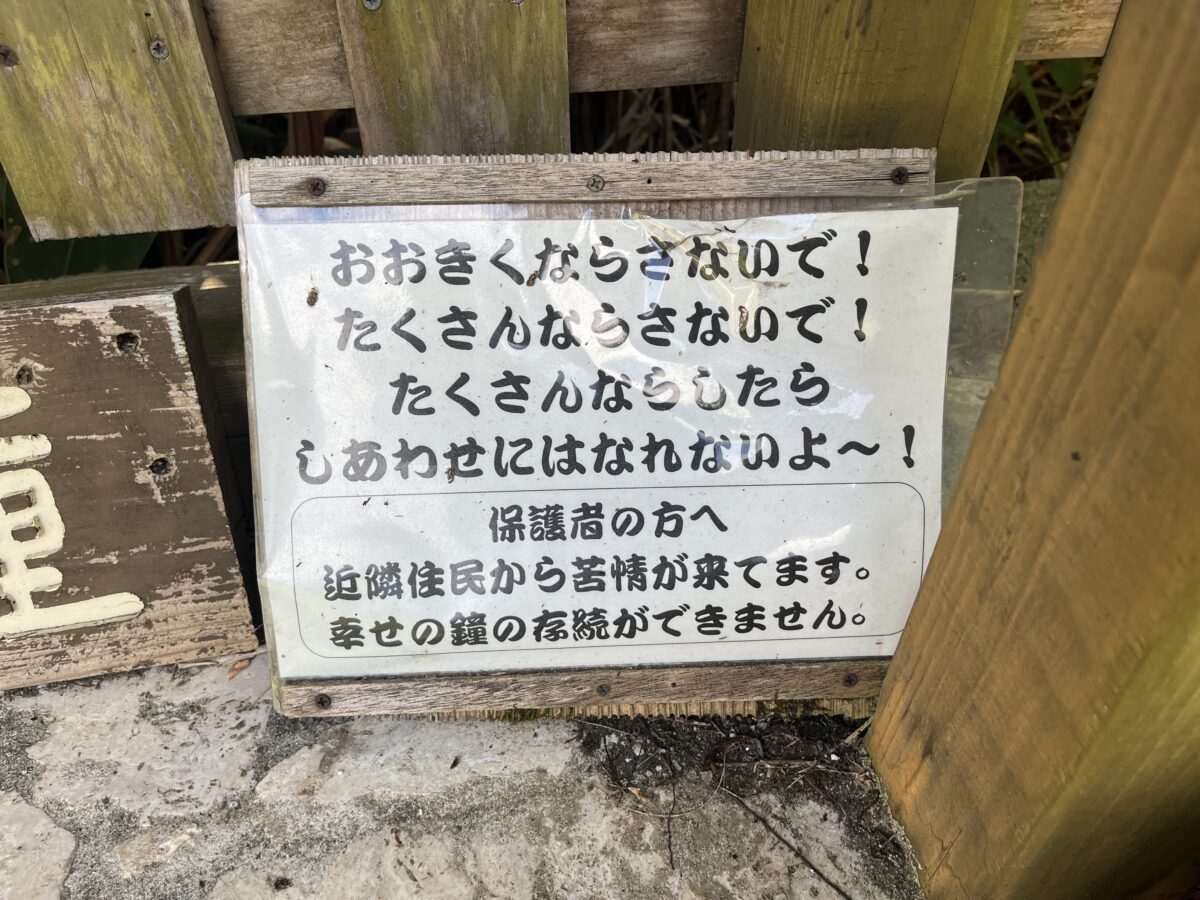 おおきくならさないで！
たくさんならさないで！
たくさんならしたら
しあわせにはなれないよ～！
保護者の方へ
近隣住民から苦情が来てます。
幸せの鐘の存続ができません。